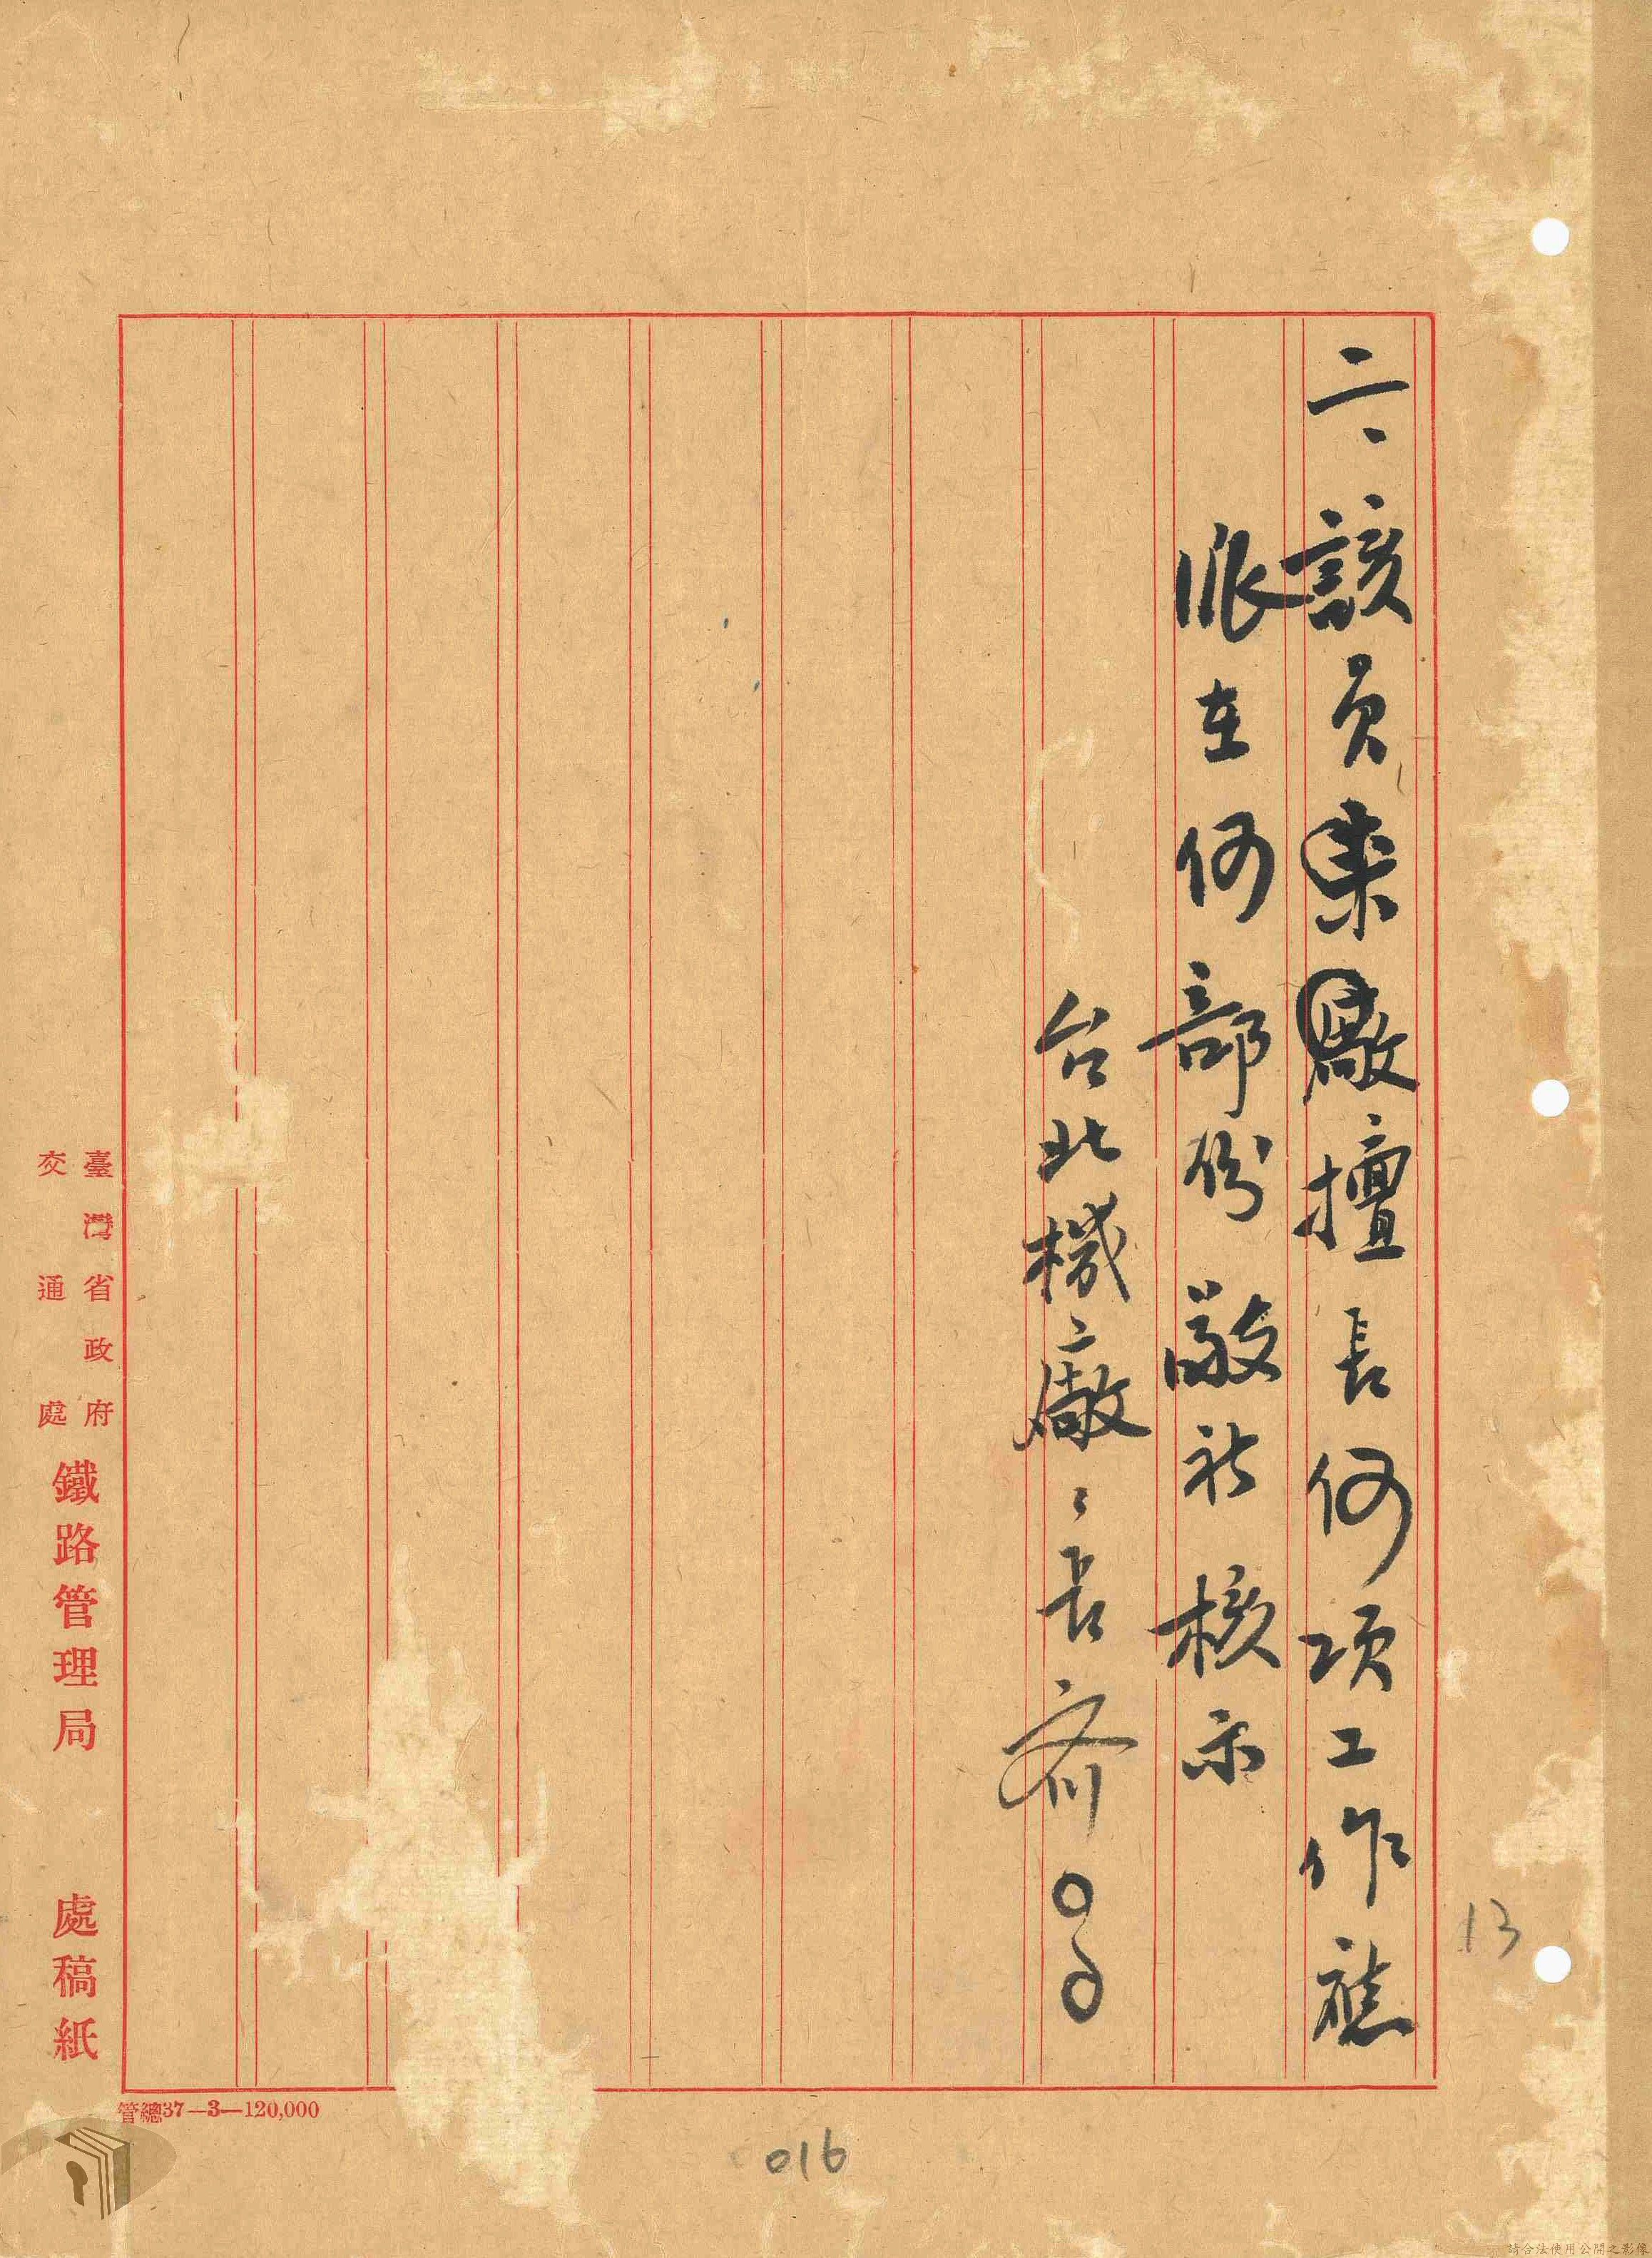 二、該員來廠擅長何項工作應
派在何部份敬祈核示
台北機廠、長齊〇〇
臺灣省政府
交通處
鐵路管理局 處稿紙
管總37—3—120,000
13
016
請合法使用公開之影像